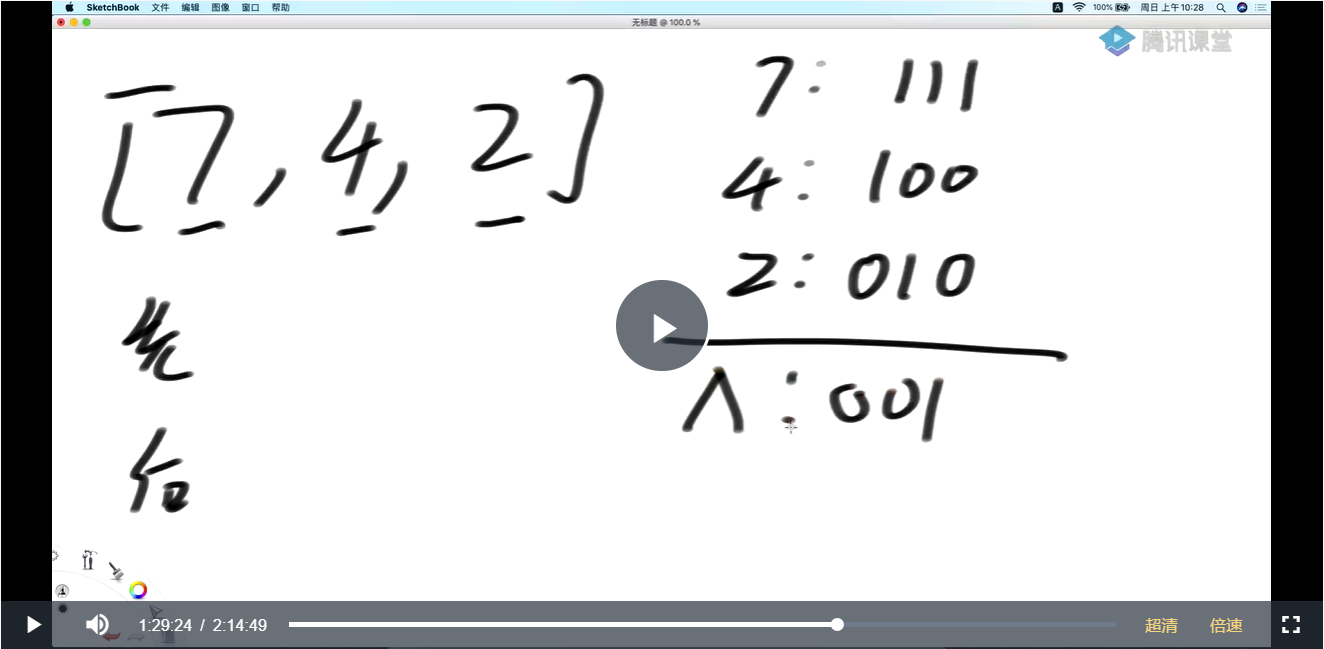 SketchBook 文件 编辑 图像 窗口 帮助
A 100% 周日 上午10:28
无标题 @ 100.0 %
腾讯课堂
[7, 4, 2]
7: 111
4: 100
2: 010
∧: 001
先
后
1:29:24 / 2:14:49
超清 倍速